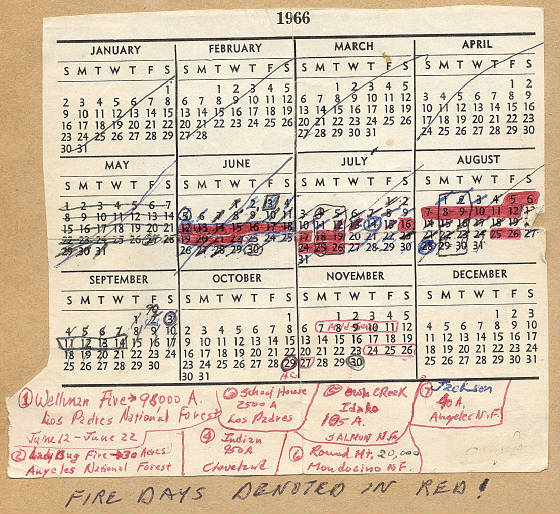 1966
JANUARY FEBRUARY MARCH APRIL
S M T W T F S S M T W T F S S M T W T F S S M T W T F S
1 1 2 3 4 5 1 2 3 4 5 1 2
2 3 4 5 6 7 8 6 7 8 9 10 11 12 6 7 8 9 10 11 12 3 4 5 6 7 8 9
9 10 11 12 13 14 15 13 14 15 16 17 18 19 13 14 15 16 17 18 19 10 11 12 13 14 15 16
16 17 18 19 20 21 22 20 21 22 23 24 25 26 20 21 22 23 24 25 26 17 18 19 20 21 22 23
23 24 25 26 27 28 29 27 28 27 28 29 30 31 24 25 26 27 28 29 30
30 31
MAY JUNE JULY AUGUST
S M T W T F S S M T W T F S S M T W T F S S M T W T F S
1 2 3 4 5 6 7 1 2 3 4 1 2 1 2 3 4 5 6
8 9 10 11 12 13 14 5 6 7 8 9 10 11 3 4 5 6 7 8 9 7 8 9 10 11 12 13
15 16 17 18 19 20 21 12 13 14 15 16 17 18 10 11 12 13 14 15 16 14 15 16 17 18 19 20
22 23 24 25 26 27 28 19 20 21 22 23 24 25 17 18 19 20 21 22 23 21 22 23 24 25 26 27
29 30 31 26 27 28 29 30 24 25 26 27 28 29 30 28 29 30 31
31
SEPTEMBER OCTOBER NOVEMBER DECEMBER
S M T W T F S S M T W T F S S M T W T F S S M T W T F S
1 2 3 1 1 2 3 4 5 1 2 3
4 5 6 7 8 9 10 2 3 4 5 6 7 8 6 7 8 9 10 11 12 4 5 6 7 8 9 10
11 12 13 14 15 16 17 9 10 11 12 13 14 15 13 14 15 16 17 18 19 11 12 13 14 15 16 17
18 19 20 21 22 23 24 16 17 18 19 20 21 22 20 21 22 23 24 25 26 18 19 20 21 22 23 24
25 26 27 28 29 30 23 24 25 26 27 28 29 27 28 29 30 25 26 27 28 29 30 31
30 31
① Wellman Fire → 98000 A.
Los Padres National Forest
June 12 - June 22
② Lady Bug Fire → 30 Acres
Angeles National Forest
③ School House
2500 A
Los Padres
④ Indian
950 A
Cleveland
⑤ Owl Creek
Idaho
185 A.
SALMON N.F.
⑥ Round Mt. 20,000
Mendocino N.F.
⑦ Jackson
A.
Angeles N.F.
FIRE DAYS DENOTED IN RED!